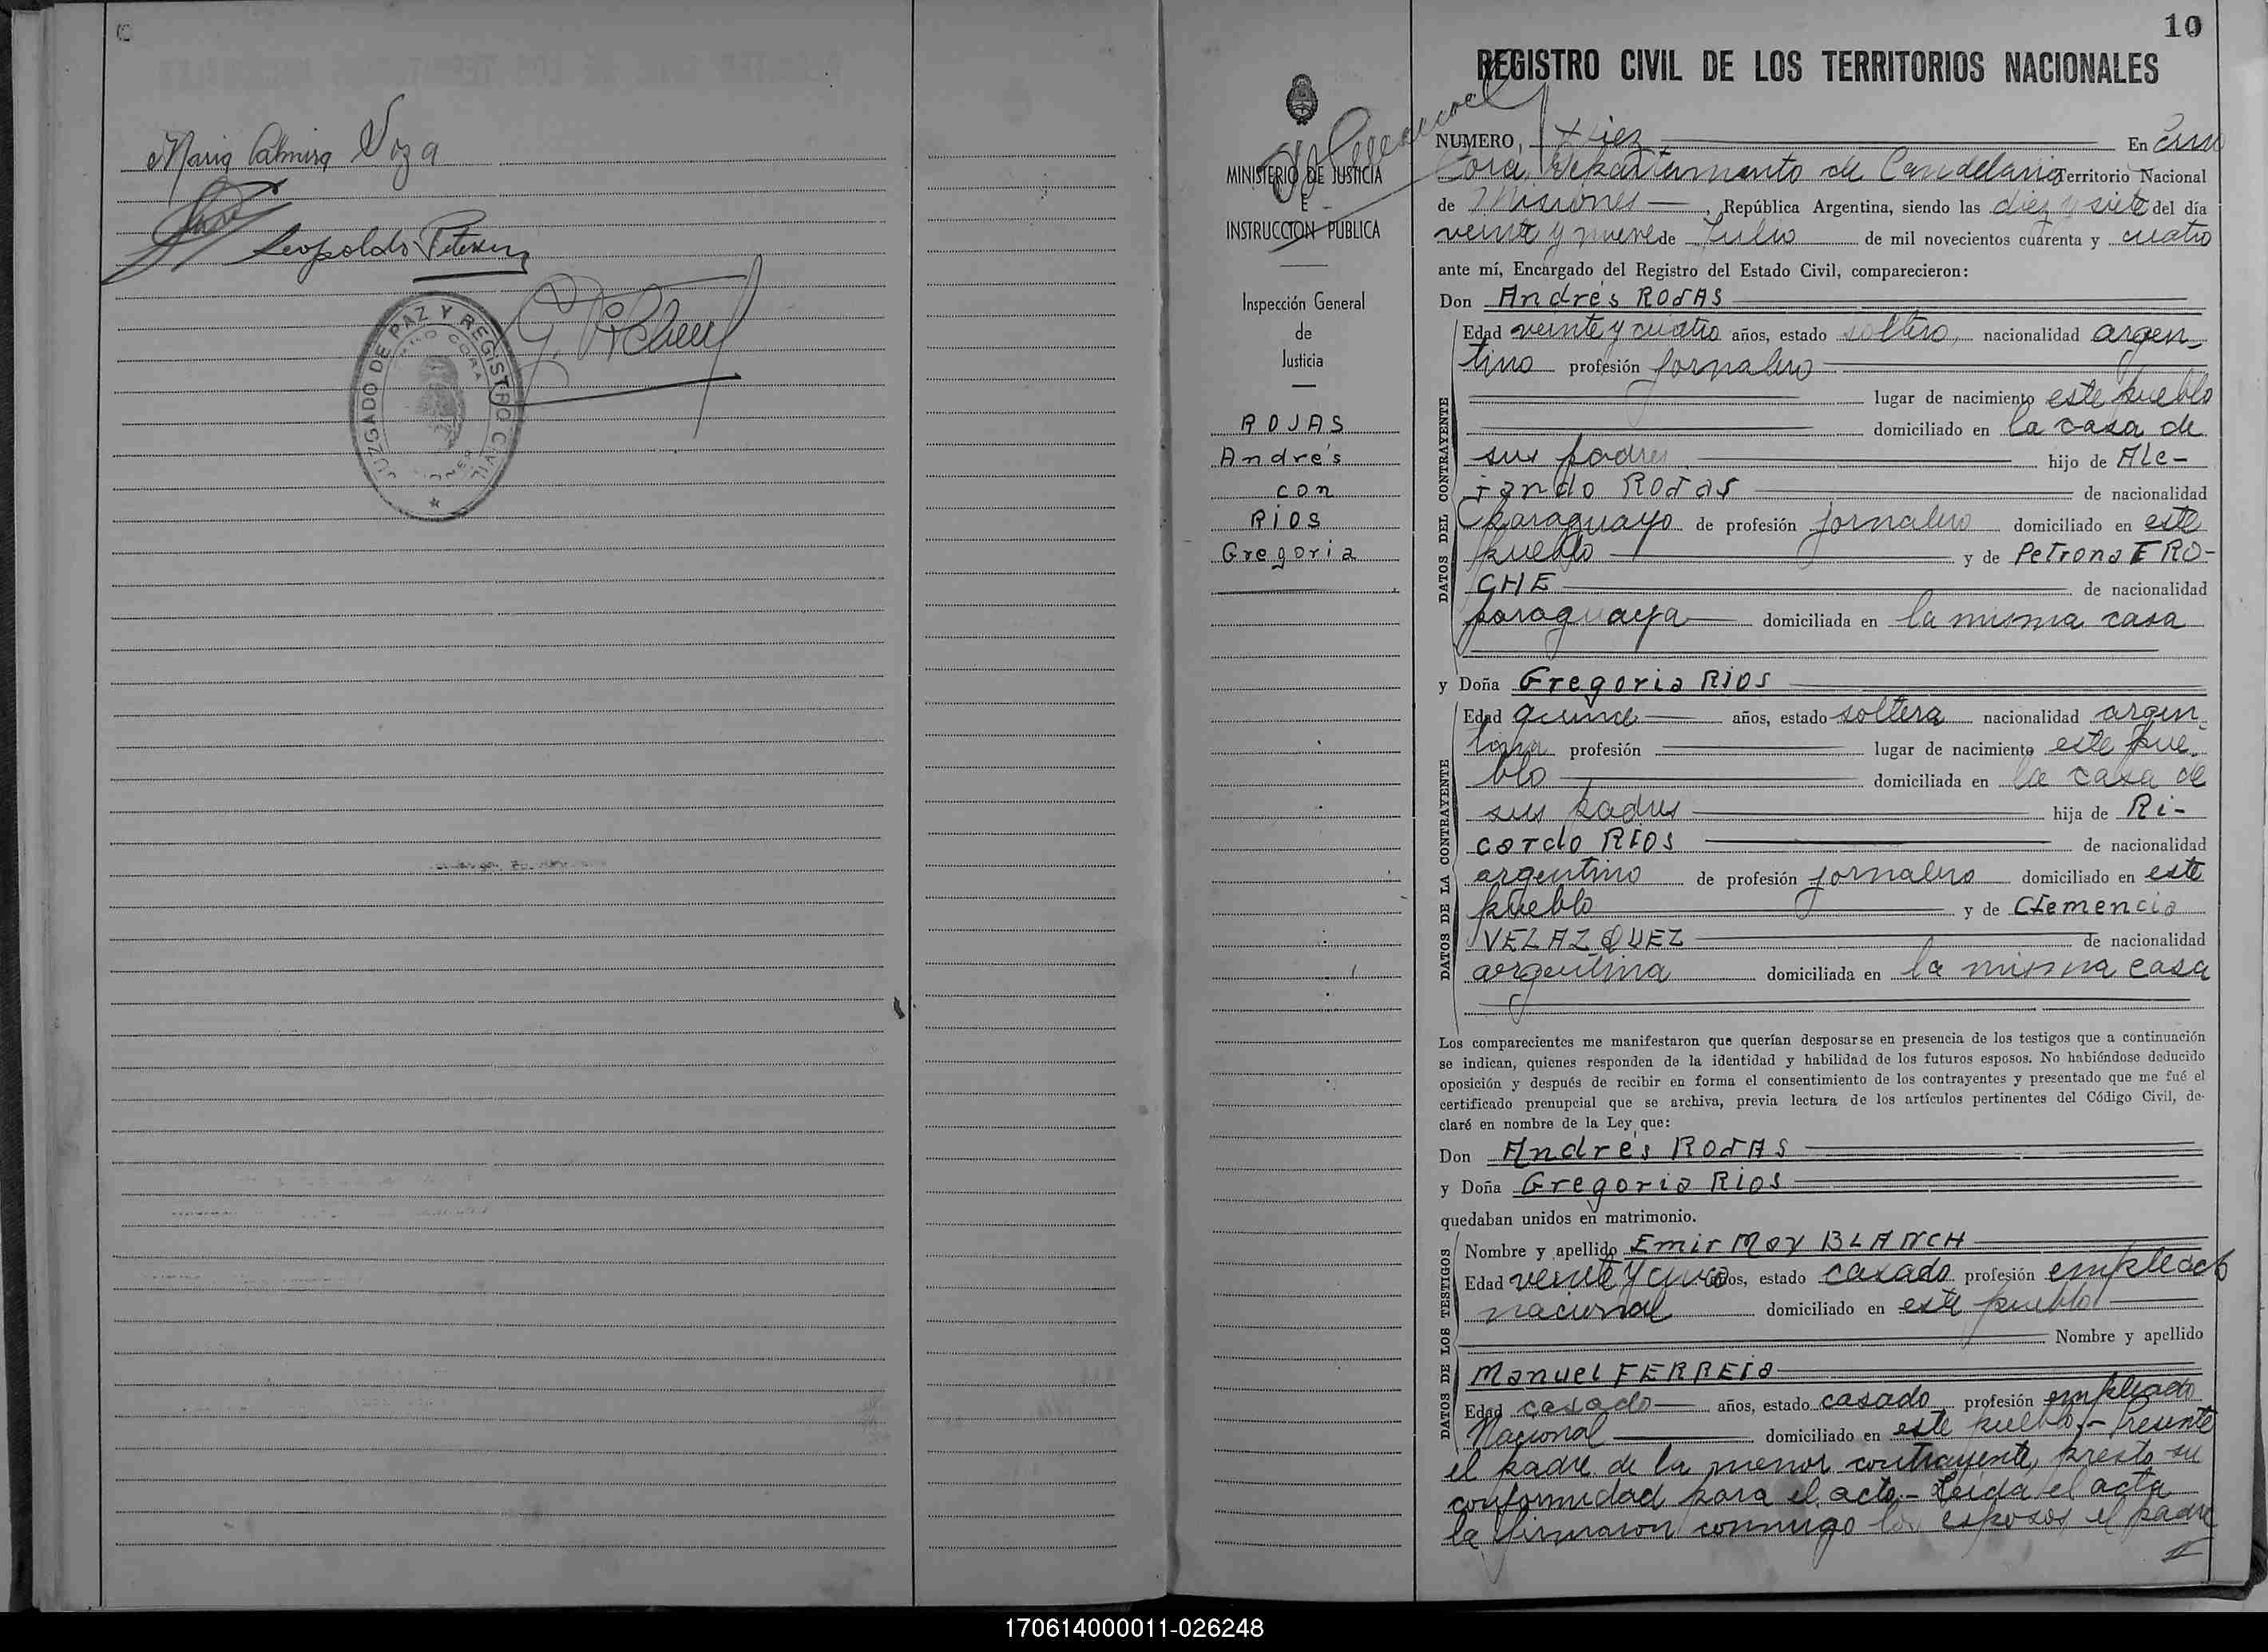 Maria Palmira Soza
Leopoldo Petersen
JUZGADO DE PAZ Y REGISTRO CIVIL
10
REGISTRO CIVIL DE LOS TERRITORIOS NACIONALES
MINISTERIO DE JUSTICIA
E
INSTRUCCION PUBLICA
Inspección General
de
Justicia
ROJAS
Andrés
con
RIOS
Gregoria
NUMERO, Diez En Cerro
Corá, Departamento de Candelaria Territorio Nacional
de Misiones, República Argentina, siendo las diez y siete del día
veinte y nueve de Julio de mil novecientos cuarenta y cuatro
ante mí, Encargado del Registro del Estado Civil, comparecieron:
Don Andrés ROJAS
DATOS DEL CONTRAYENTE
Edad veinte y cuatro años, estado soltero, nacionalidad argen-
tino profesión jornalero
lugar de nacimiento este pueblo
domiciliado en la casa de
sus padres hijo de Ale-
jandro ROJAS de nacionalidad
paraguayo de profesión jornalero domiciliado en este
pueblo y de Petrona ERO-
CHE de nacionalidad
paraguaya domiciliada en la misma casa
y Doña Gregoria RIOS
DATOS DE LA CONTRAYENTE
Edad quince años, estado soltera nacionalidad argen-
tina profesión lugar de nacimiento este pue-
blo domiciliada en la casa de
sus padres hija de Ri-
cardo RIOS de nacionalidad
argentino de profesión jornalero domiciliado en este
pueblo y de Clemencia
VELAZQUEZ de nacionalidad
argentina domiciliada en la misma casa
Los comparecientes me manifestaron que querían desposarse en presencia de los testigos que a continuación
se indican, quienes responden de la identidad y habilidad de los futuros esposos. No habiéndose deducido
oposición y después de recibir en forma el consentimiento de los contrayentes y presentado que me fué el
certificado prenupcial que se archiva, previa lectura de los artículos pertinentes del Código Civil, de-
claré en nombre de la Ley que:
Don Andrés ROJAS
y Doña Gregoria RIOS
quedaban unidos en matrimonio.
DATOS DE LOS TESTIGOS
Nombre y apellido Emir Moy BLANCH
Edad veinte y cinco años, estado casado profesión empleado
nacional domiciliado en este pueblo
Nombre y apellido
Manuel FERREIA
Edad casado años, estado casado profesión empleado
Nacional domiciliado en este pueblo.- Presente
el padre de la menor contrayente, presto su
conformidad para el acto.- Leida el acta
la firmaron conmigo los esposos el padre
170614000011-026248